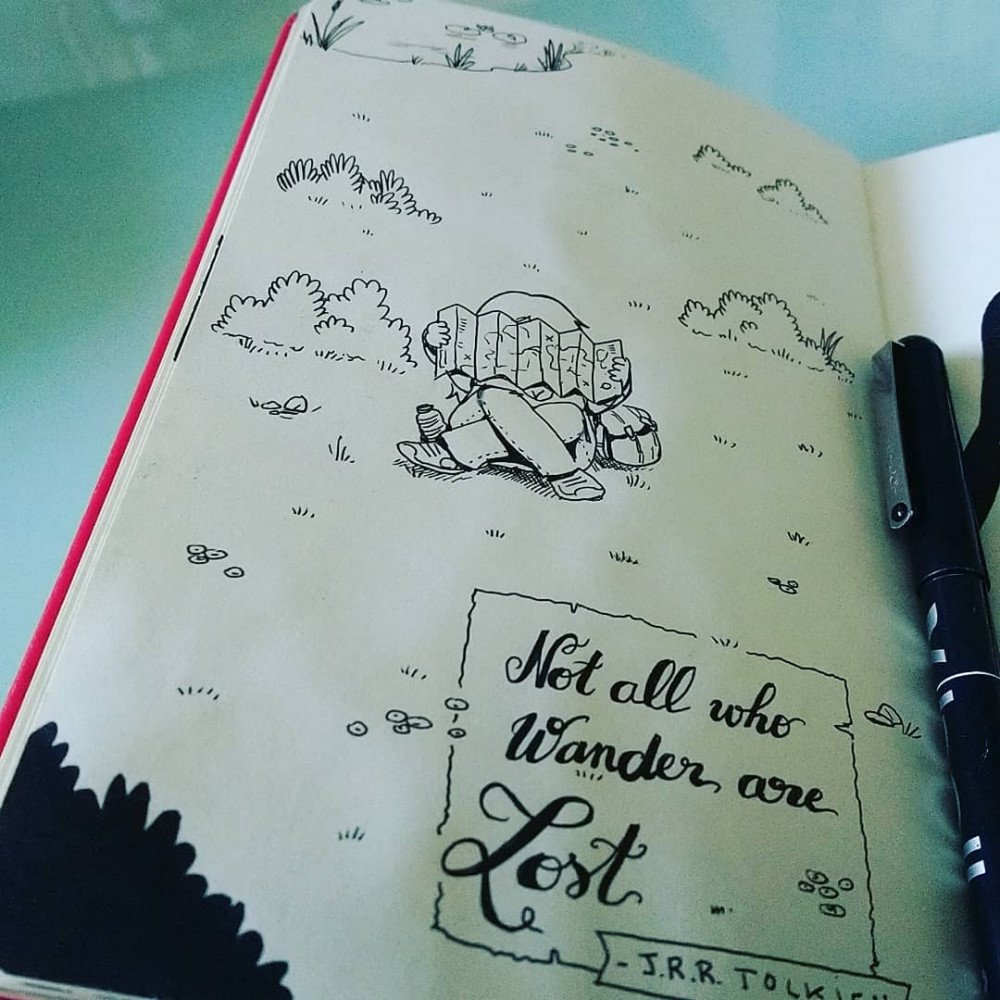 Not all who
Wander are
Lost
- J.R.R. TOLKIEN